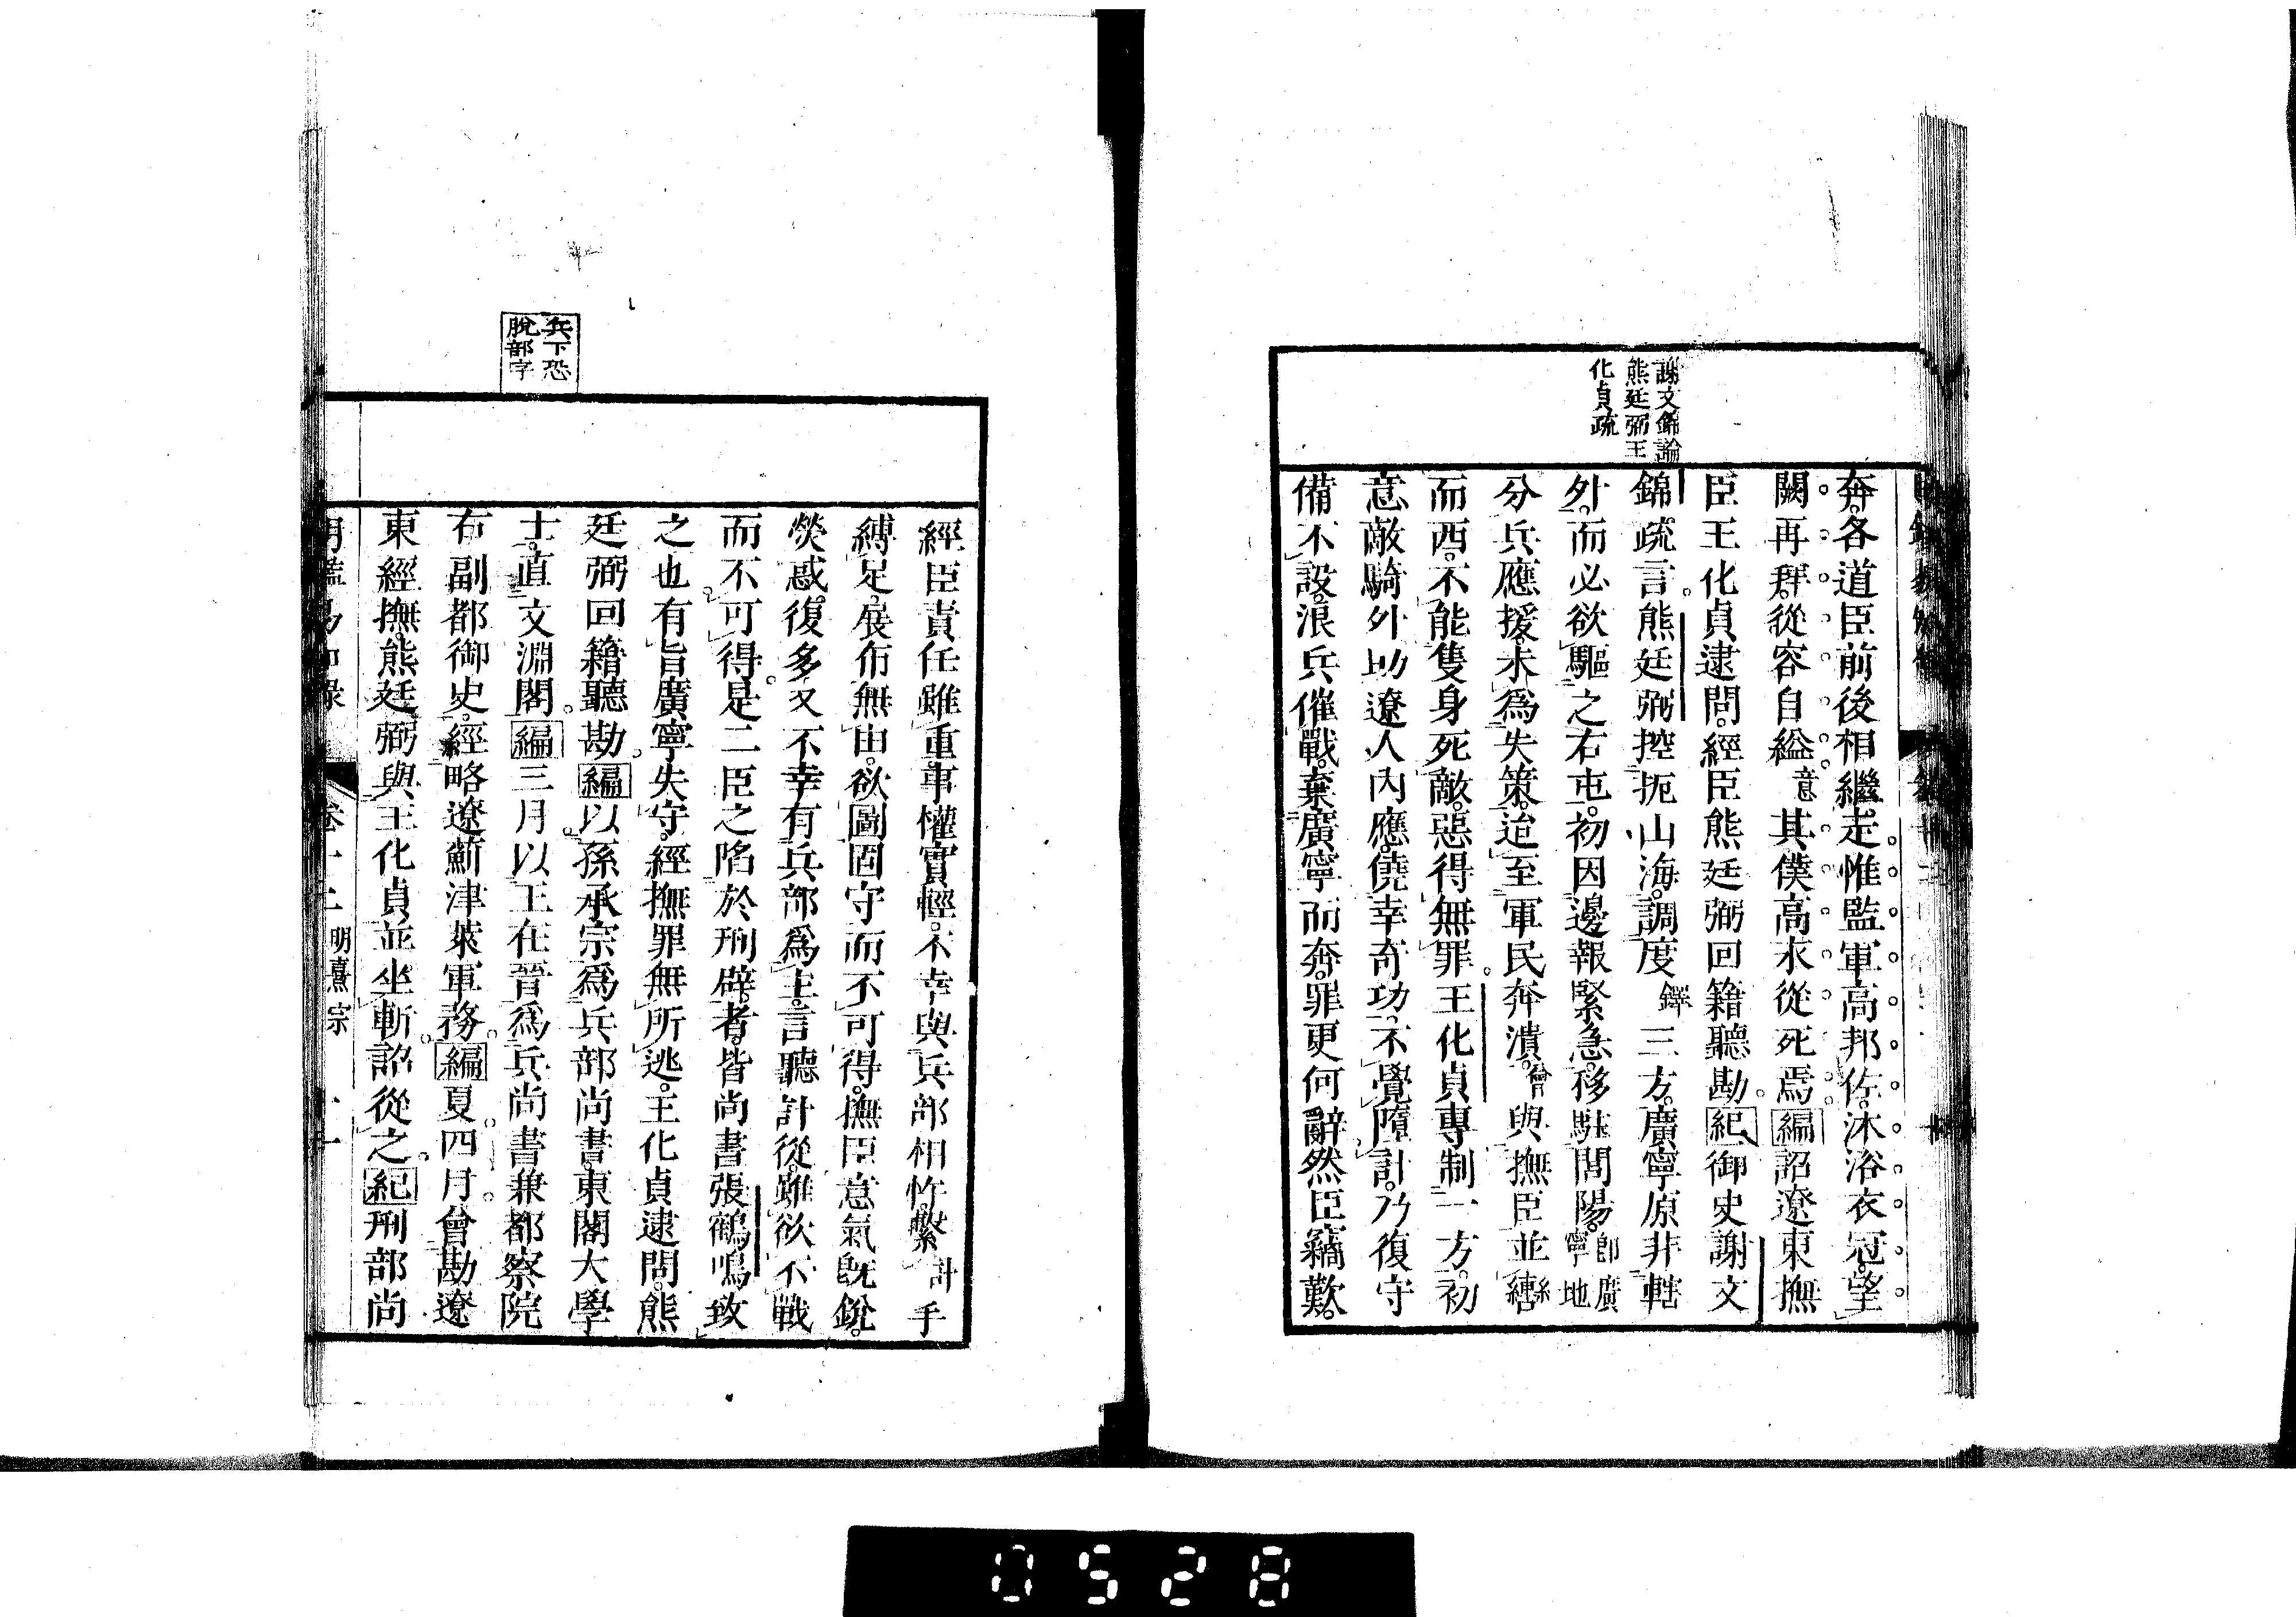 謝文錦論
熊廷弼王
化貞疏
奔。各道臣前後相繼走。惟監軍高邦佐。沐浴衣冠。望
闕再拜。從容自縊意其僕高永從死焉。編詔遼東撫
臣王化貞逮問。經臣熊廷弼回籍聽勘。紀御史謝文
錦疏言。熊廷弼控扼山海。調度鐸三方。廣寧原非轄
外。而必欲驅之右屯。初因邊報緊急。移駐閭陽。卽廣寧地
分兵應援。未為失策。迨至軍民奔潰。曾與撫臣並轡絲
而西。不能隻身死敵。惡得無罪。王化貞專制一方。初
意敵騎外助。遼人內應。僥幸奇功。不覺墮計。乃復守
備不設。浪兵催戰。棄廣寧而奔。罪更何辭。然臣竊歎。
兵下恐
脫部字
經臣責任雖重。事權實輕。不幸與兵部相忤。繫計手
縛足。展布無由。欲圖固守而不可得。撫臣意氣旣銳。
熒惑復多。又不幸有兵部為主。言聽計從。雖欲不戰
而不可得。是二臣之陷於刑辟者。皆尚書張鶴鳴致
之也。有旨廣寧失守。經撫罪無所逃。王化貞逮問。熊
廷弼回籍聽勘。編以孫承宗為兵部尚書。東閣大學
士。直文淵閣。編三月以王在晉為兵尚書兼都察院
右副都御史。經略遼薊津萊軍務。編夏四月。會勘遼
東經撫。熊廷弼與王化貞並坐斬。詔從之。紀刑部尚
卷十二 明熹宗
0528